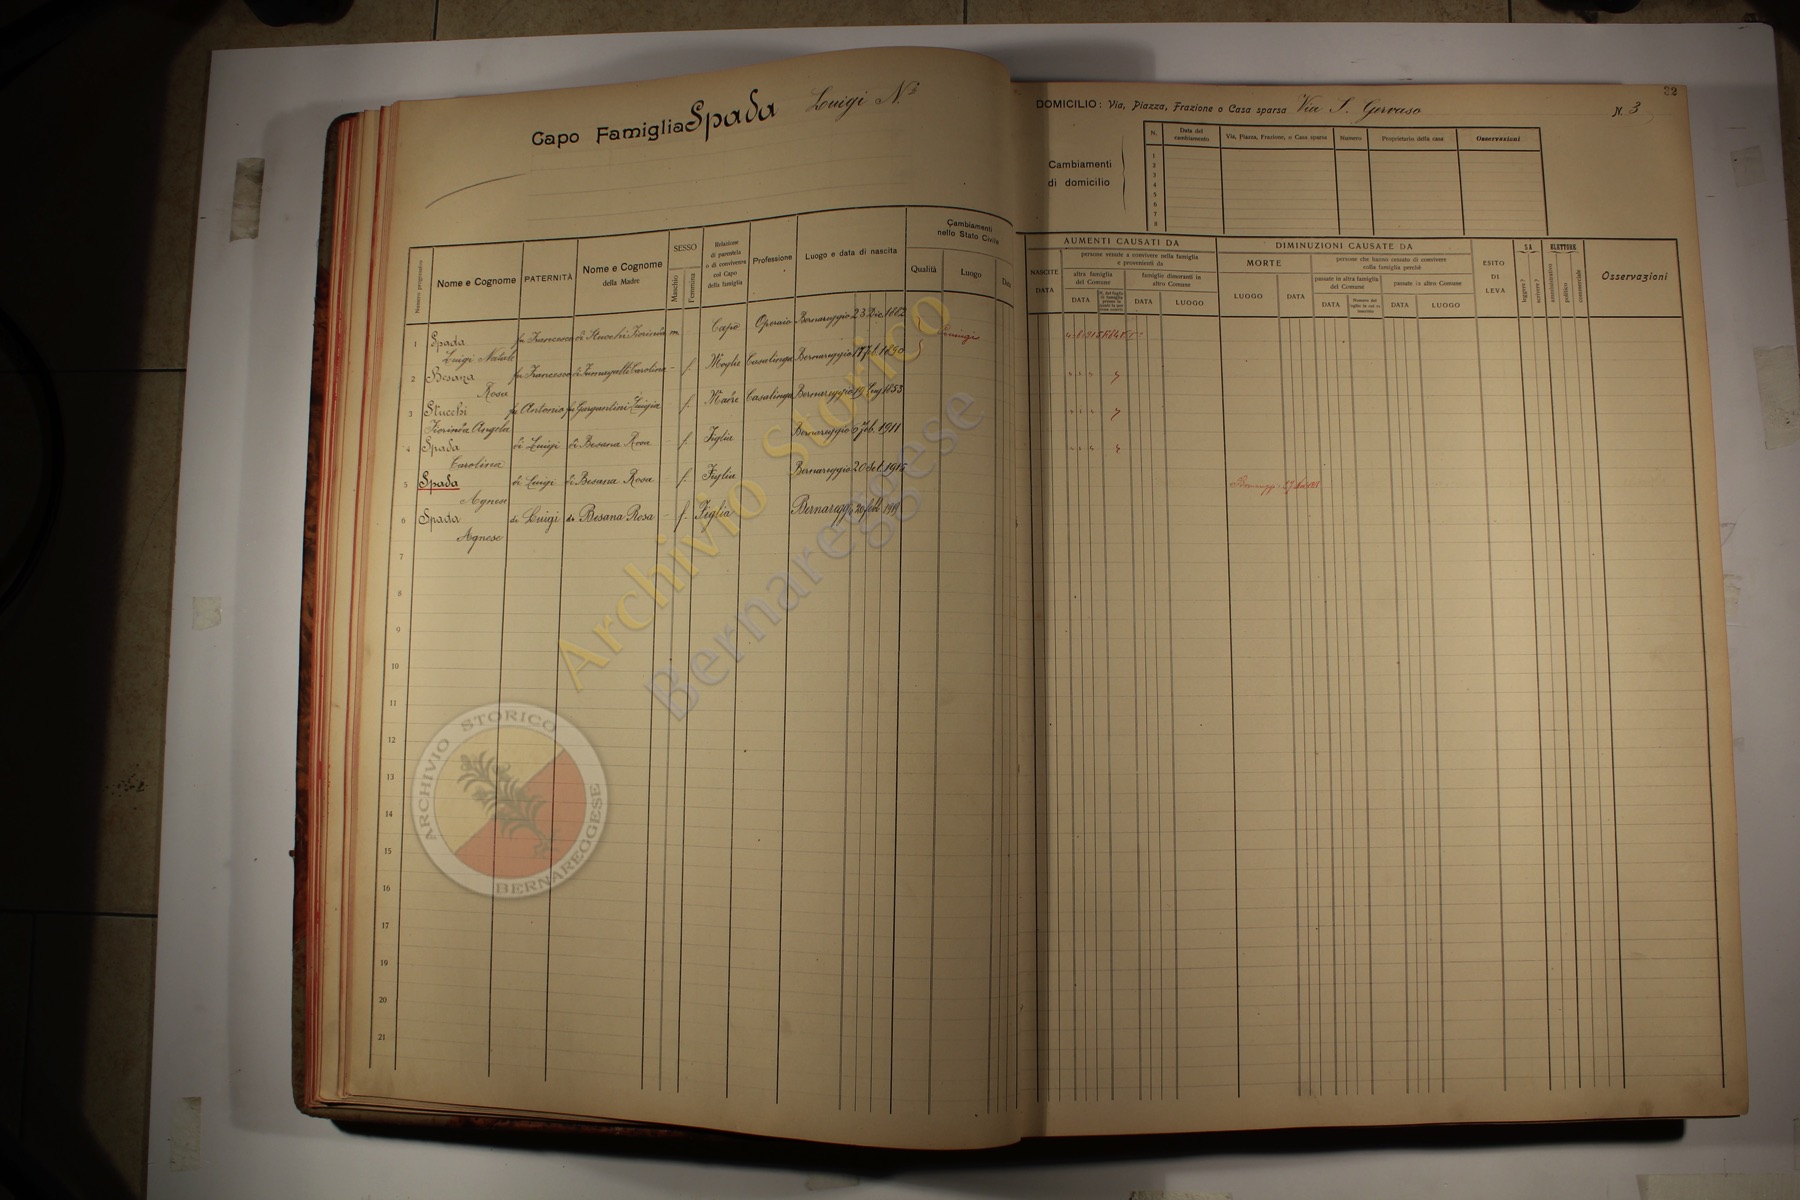 Capo Famiglia Spada Luigi N.e
Numero progressivo
Nome e Cognome
PATERNITÀ
Nome e Cognome
della Madre
SESSO
Maschio
Femmina
Relazione
di parentela
o di convivenza
col Capo
della famiglia
Professione
Luogo e data di nascita
Cambiamenti
nello Stato Civile
Qualità
Luogo
Data
1 Spada fu Francesco di Stucchi Fiorinda m. Capo Operaio Bernareggio 23 Dic. 1882
Luigi Natale
2 Besana fu Francesco di Fumagalli Carolina f. Moglie Casalinga Bernareggio 1890
Rosa
3 Stucchi fu Antonio fu Gargantini Luigia f. Madre Casalinga Bernareggio 19 1853
Fiorinda Angela
4 Spada di Luigi di Besana Rosa f. Figlia Bernareggio Feb. 1911
Carolina
5 Spada di Luigi di Besana Rosa f. Figlia Bernareggio 20 Set. 1915
Agnese
6 Spada di Luigi di Besana Rosa f. Figlia Bernaregg. 20 febb. 1919
Agnese
7
8
9
10
11
12
13
14
15
16
17
18
19
20
21
32
DOMICILIO: Via, Piazza, Frazione o Casa sparsa Via S. Gervaso N. 3
Cambiamenti
di domicilio
N.
Data del
cambiamento
Via, Piazza, Frazione, o Casa sparsa
Numero
Proprietario della casa
Osservazioni
1
2
3
4
5
6
7
8
AUMENTI CAUSATI DA
NASCITE
DATA
persone venute a convivere nella famiglia
e provenienti da
altra famiglia
del Comune
famiglie dimoranti in
altro Comune
DATA
DATA
LUOGO
DIMINUZIONI CAUSATE DA
MORTE
LUOGO
DATA
persone che hanno cessato di convivere
colla famiglia perchè
passate in altra famiglia
del Comune
passate in altro Comune
DATA
DATA
LUOGO
ESITO
DI
LEVA
SA
leggere?
scrivere?
ELETTORE
amministrativo
politico
commerciale
Osservazioni
Archivio Storico
Bernareggese
ARCHIVIO STORICO
BERNAREGGESE